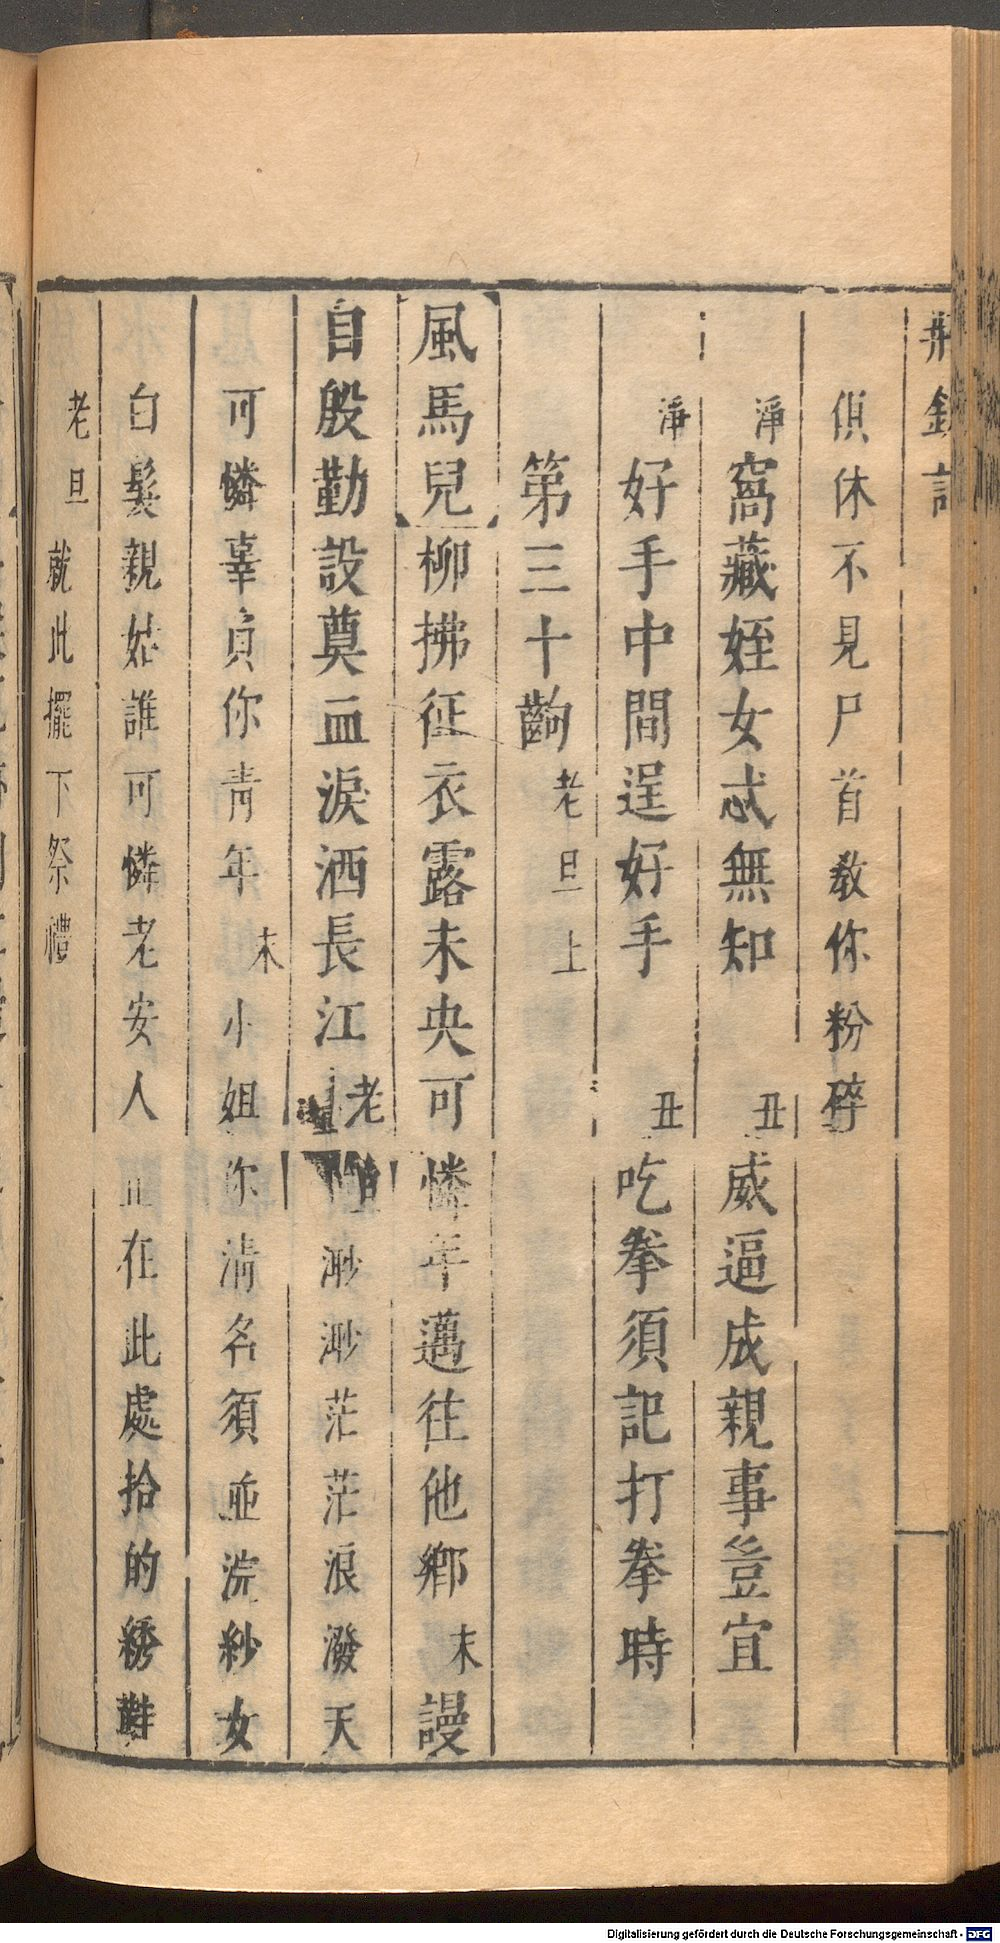 荊釵記
俱休不見尸首敎你粉碎
淨窩藏姪女忒無知 丑威逼成親事豈宜
淨好手中間逞好手 丑吃拳須記打拳時
第三十齣老旦上
風馬兒柳拂征衣露未央可憐年邁往他鄉末謾
自殷勤設奠血淚洒長江老旦渺渺茫茫浪潑天
可憐辜負你靑年末小姐你淸名須並浣紗女
白髮親姑誰可憐老安人正在此處拾的綉鞋
老旦就此擺下祭禮
Digitalisierung gefördert durch die Deutsche Forschungsgemeinschaft - DFG